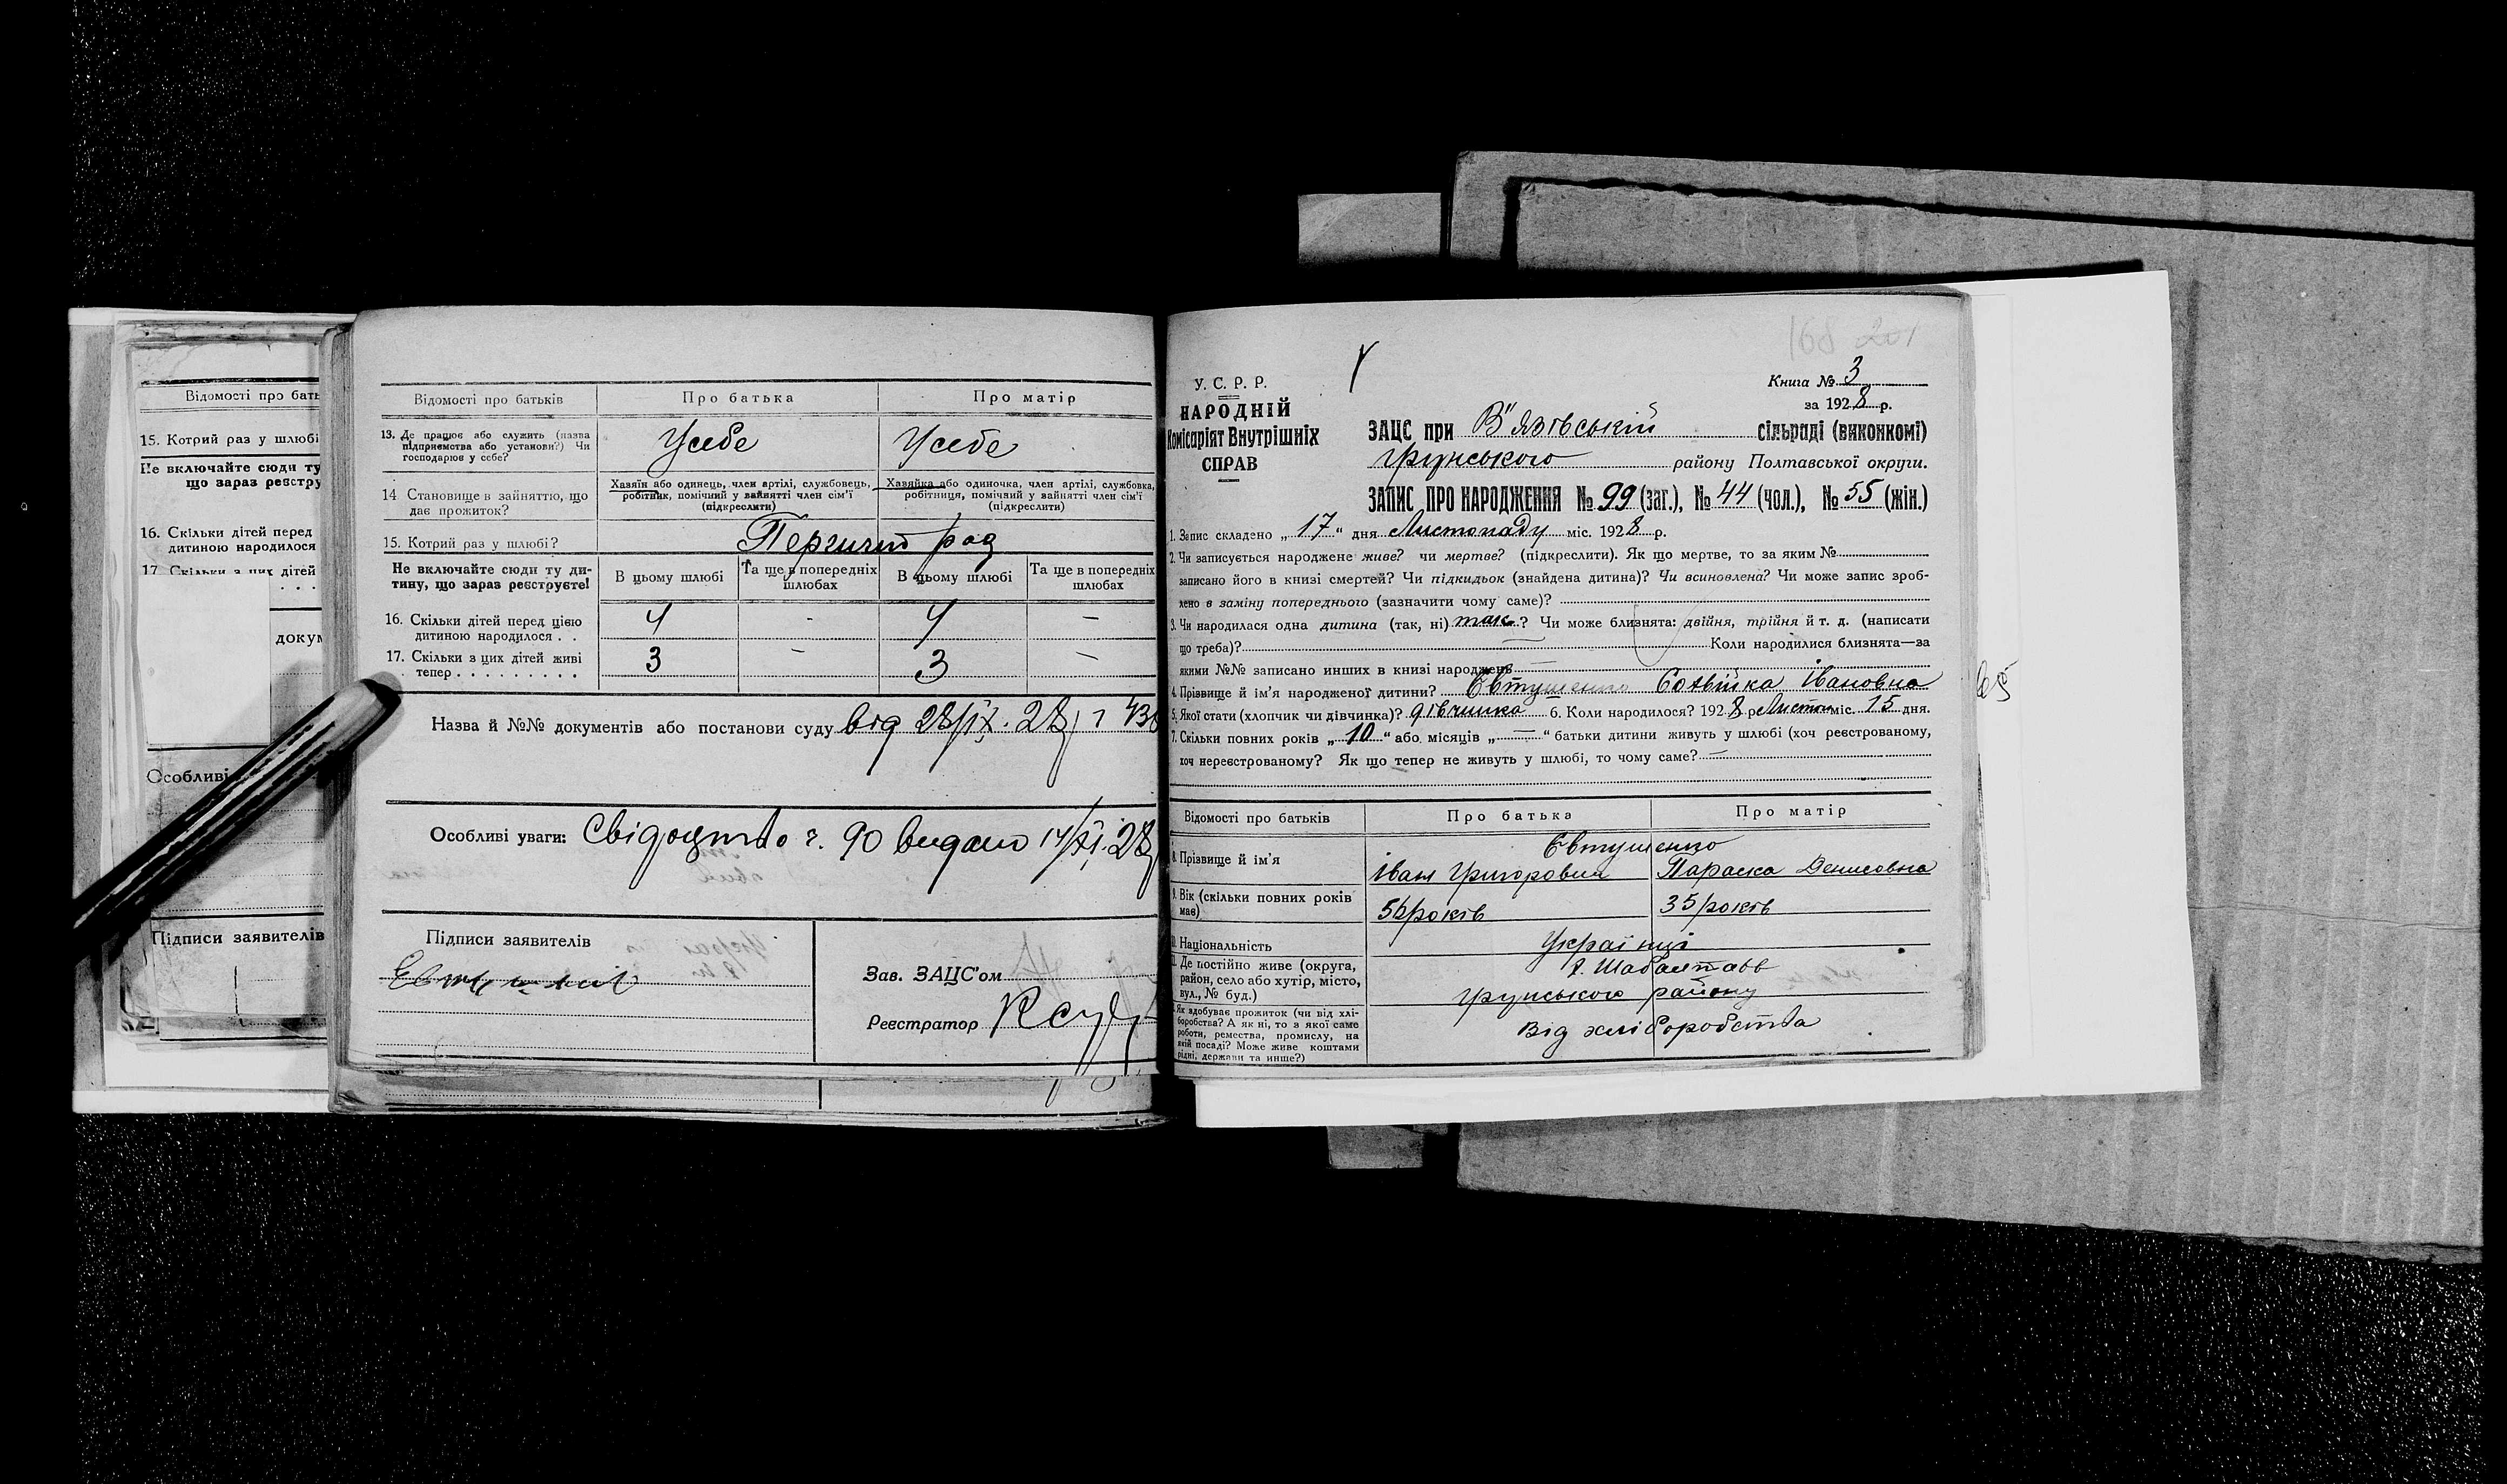 Відомості про бать
15. Котрий раз у шлюбі
Не включайте сюди ту
що зараз реєстру
16. Скільки дітей перед
дитиною народилося
17. Скільки з цих дітей
. . .
докум
Особливі
Підписи заявителів
Відомості про батьків
Про батька
Про матір
13. Де працює або служить (назва
підприємства або установи?) Чи
господарює у себе?
Усебе
Усебе
14 Становище в зайняттю, що
дає прожиток?
Хазяїн або одинець, член артілі, службовець,
робітник, помічний у зайнятті член сім'ї
(підкреслити)
Хазяйка або одиночка, член артілі, службовка,
робітниця, помічний у зайнятті член сім'ї
(підкреслити)
15. Котрий раз у шлюбі?
раз
Не включайте сюди ту ди-
тину, що зараз реєструєте!
В цьому шлюбі
Та ще в попередніх
шлюбах
В цьому шлюбі
Та ще в попередніх
шлюбах
16. Скільки дітей перед цією
дитиною народилося . .
4 - 4 —
17. Скільки з цих дітей живі
тепер . . . . . . . . .
3 - 3 —
Назва й №№ документів або постанови суду від 28/ІХ. 28 р
Особливі уваги: Свідоцтво ч. 90 видано 14/ХІ. 28
Підписи заявителів
Зав. ЗАЦС'ом
Реєстратор
168 201
У. С. Р. Р.
НАРОДНІЙ
Комісаріят Внутрішніх
СПРАВ
Книга № 3
за 1928 р.
ЗАЦС при В"язівській сільраді (виконкомі)
Грунського району Полтавської округи.
ЗАПИС ПРО НАРОДЖЕННЯ № 99 (заг.), № 44 (чол.), № 55 (жін.)
1. Запис складено „ 17 “ дня Листопаду міс. 1928 р.
2. Чи записується народжене живе? чи мертве? (підкреслити). Як що мертве, то за яким №
записано його в книзі смертей? Чи підкидьок (знайдена дитина)? Чи всиновлена? Чи може запис зроб-
лено в заміну попереднього (зазначити чому саме)?
3. Чи народилася одна дитина (так, ні) так ? Чи може близнята: двійня, трійня й т. д. (написати
що треба)? — Коли народилися близнята—за
якими №№ записано инших в книзі народжень —
4. Прізвище й ім'я народженої дитини? Євтушенко Івановна
65
5. Якої стати (хлопчик чи дівчинка)? дівчинка 6. Коли народилося? 1928 р Листоп міс. 15 дня.
7. Скільки повних років „ 10 “ або місяців „ — “ батьки дитини живуть у шлюбі (хоч реєстрованому,
хоч нереєстрованому? Як що тепер не живуть у шлюбі, то чому саме? —
Відомості про батьків
Про батька
Про матір
8. Прізвище й ім'я
Євтушенко
Іван Григорович Параска Денисовна
9. Вік (скільки повних років
має)
років
35 років
10. Національність
Українці
11. Де постійно живе (округа,
район, село або хутір, місто,
вул., № буд.)
х. Шабалтаєв
Грунського району
Як здобуває прожиток (чи від хлі-
боробства? А як ні, то з якої саме
роботи, ремества, промислу, на
якій посаді? Може живе коштами
рідні, держави та инше?)
Від хліборобства